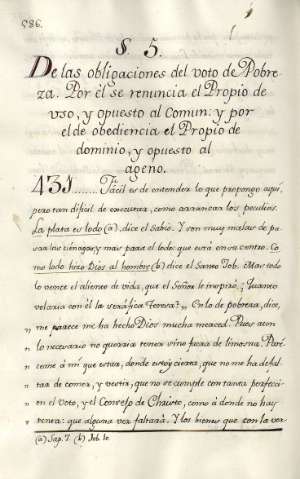 586.
§. 5.
De las obligaciones del voto de Pobre-
za. Por él se renuncia el Propio de
uso, y opuesto al Comun: y por
el de obediencia el Propio de
dominio, y opuesto al
ageno.
431....... Facil es de entender lo que propongo aqui,
pero tan dificil de executar, como arrancar los peculios.
La plata es lodo (a) dice el Sabio. Y son muy malas de pa-
sar las cienagas, y mas para el lodo: que está en su centro. Co-
mo lodo hizo Dios al hombre (b) dice el Santo Job. Mas todo
lo vence el aliento de vida, que el Señor le inspiró. ¡Quanto
volaria con él la seráfica Teresa! „ En lo de pobreza, dice,
„ me parece me ha hecho Dios mucha merced. Pues aun
„ lo necesario no querria tener sino fuera de limosna. Paré-
„ ceme á mi que estar, donde estoy cierta, que no me ha de fal-
„ tar de comer, y vestir, que no se cumple con tanta perfecci-
„ on el voto, y el Consejo de Christo, como á donde no hay
„ renta: que alguna vez faltará. Y los bienes que con la ver-
(a) Sap. 7. (b) Job. 10.